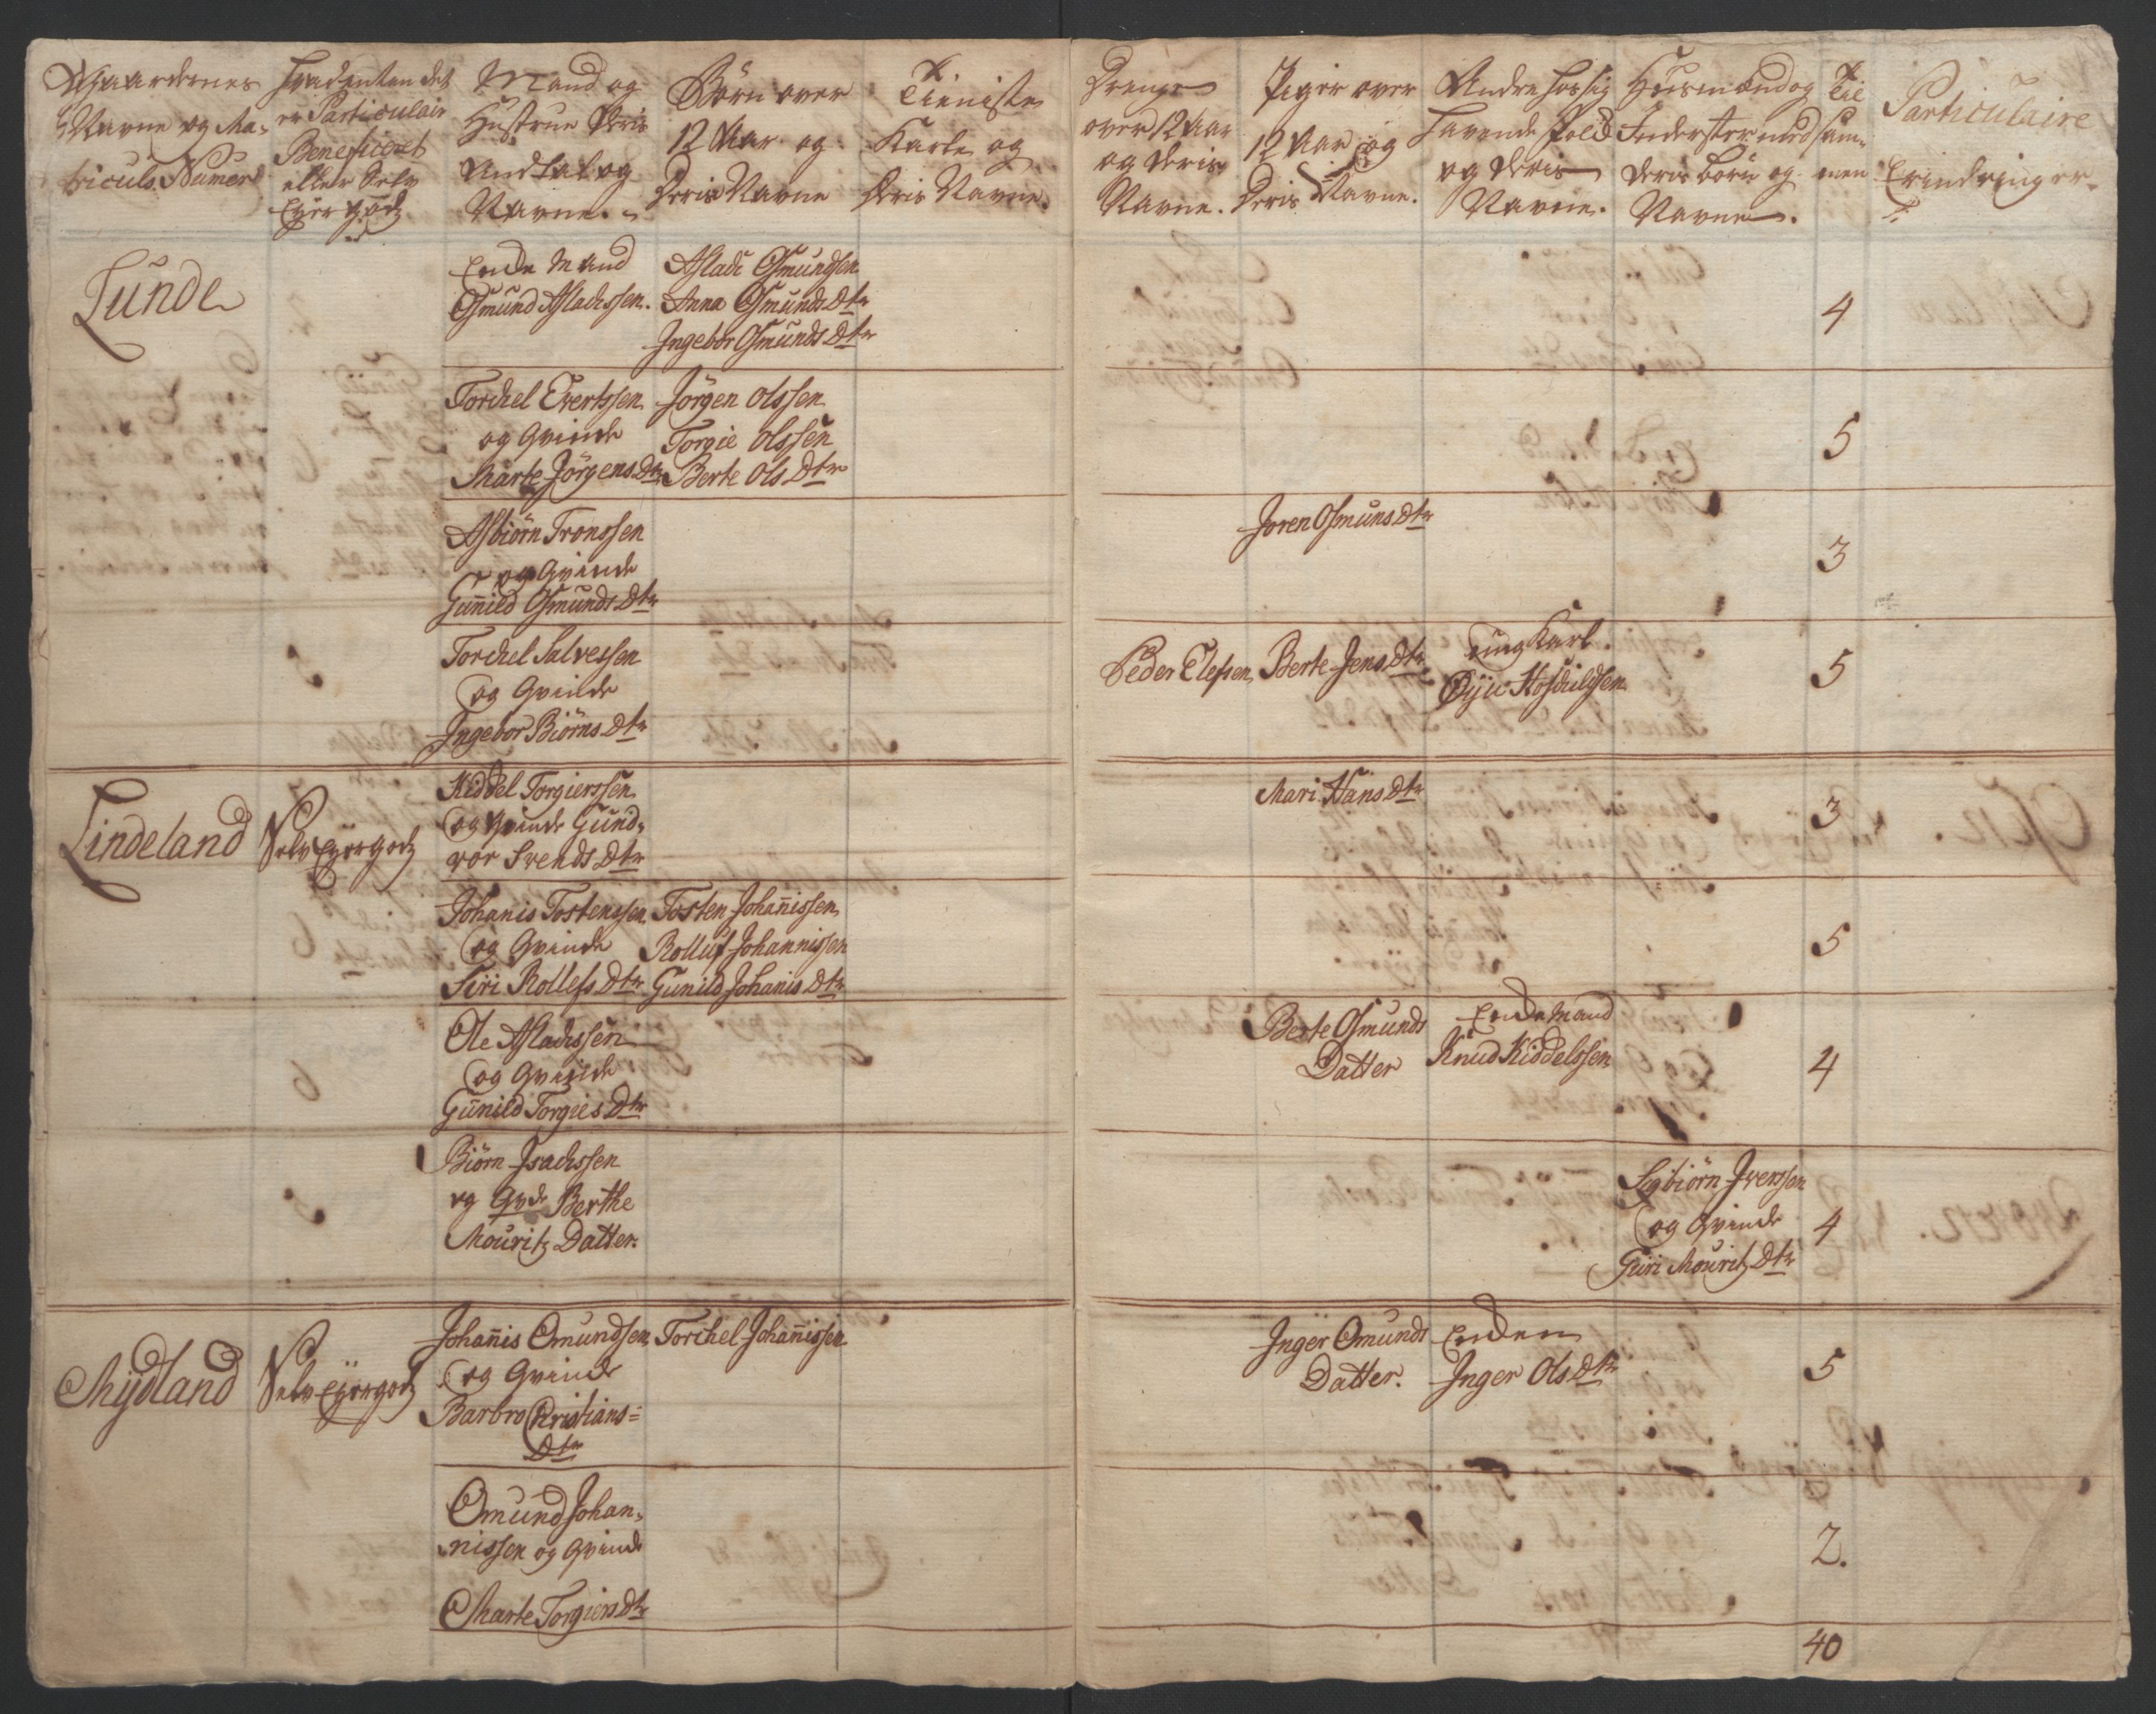 Gaardernes
Navne og Ma-
triculs Numer
hvad enten det
er Particulair
Beneficeret
eller Selv
Eyer godz
Mand og
Hustrue Deris
Andtal og
Navne.
Børn over
12 Aar og
Deris Navne
Tieniste
Karle og
Deris Navne.
Drenge
over 12 Aar
og deris
Navne.
Piger over
12 Aar og
Deris Navne.
Andre hos sig
havende Folck
og deris
Navne.
Huusmænd og
Inderster med
deris børn og
Navne.
Til
sam-
men
Particulaire
Erindringer
Lunde
Enke Mand
Osmund Aslachssen.
Aslach Osmundsen
Anna Osmunds Dtr
Ingebor Osmunds Dtr
4
Torchel Evertssen
og Qvinde
Marte Jörgens Dtr
Jörgen Olssen
Torgie Olssen
Berte Ols Dtr
5
Asbiörn Tronssen
og Qvinde
Gunnild Osmunds Dtr
Joren Osmuns Dtr
3
Torchel Salvessen
og Qvinde
Ingebor Biörns Dtr
Peder Elefsen
Berte Jens Dtr
ung Karl
5
Lindeland
Selv Eyer godz
Kiddel Torgierssen
og Qvinde Gund-
vor Svends Dtr
Mari Hans Dtr
3
Johanis Tostenssen
og Qvinde
Siri Rollefs Dtr
Tosten Johannissen
Rolluf Johannissen
Gunild Johanis Dtr
5
Ole Aslachssen
og Qvinde
Gunild Torgies Dtr
Berte Osmunds
Datter
Enke Mand
Knud Kiddelssen
4
Biörn Isachssen
og Qvde Berthe
Mouritz Datter.
Sigbiörn Iverssen
og Qvinde
Guri Mouritz Dtr
4
Mydland
Selv Eyer godz
Johannis Omundsen
og Qvinde
Barbro Christians=
Dtr
Torchel Johannissen
Inger Omunds
Datter.
Enken
Inger Ols Dtr
5
Omund Johan-
nissen og Qvinde
Marte Torgiers Dtr
2.
40